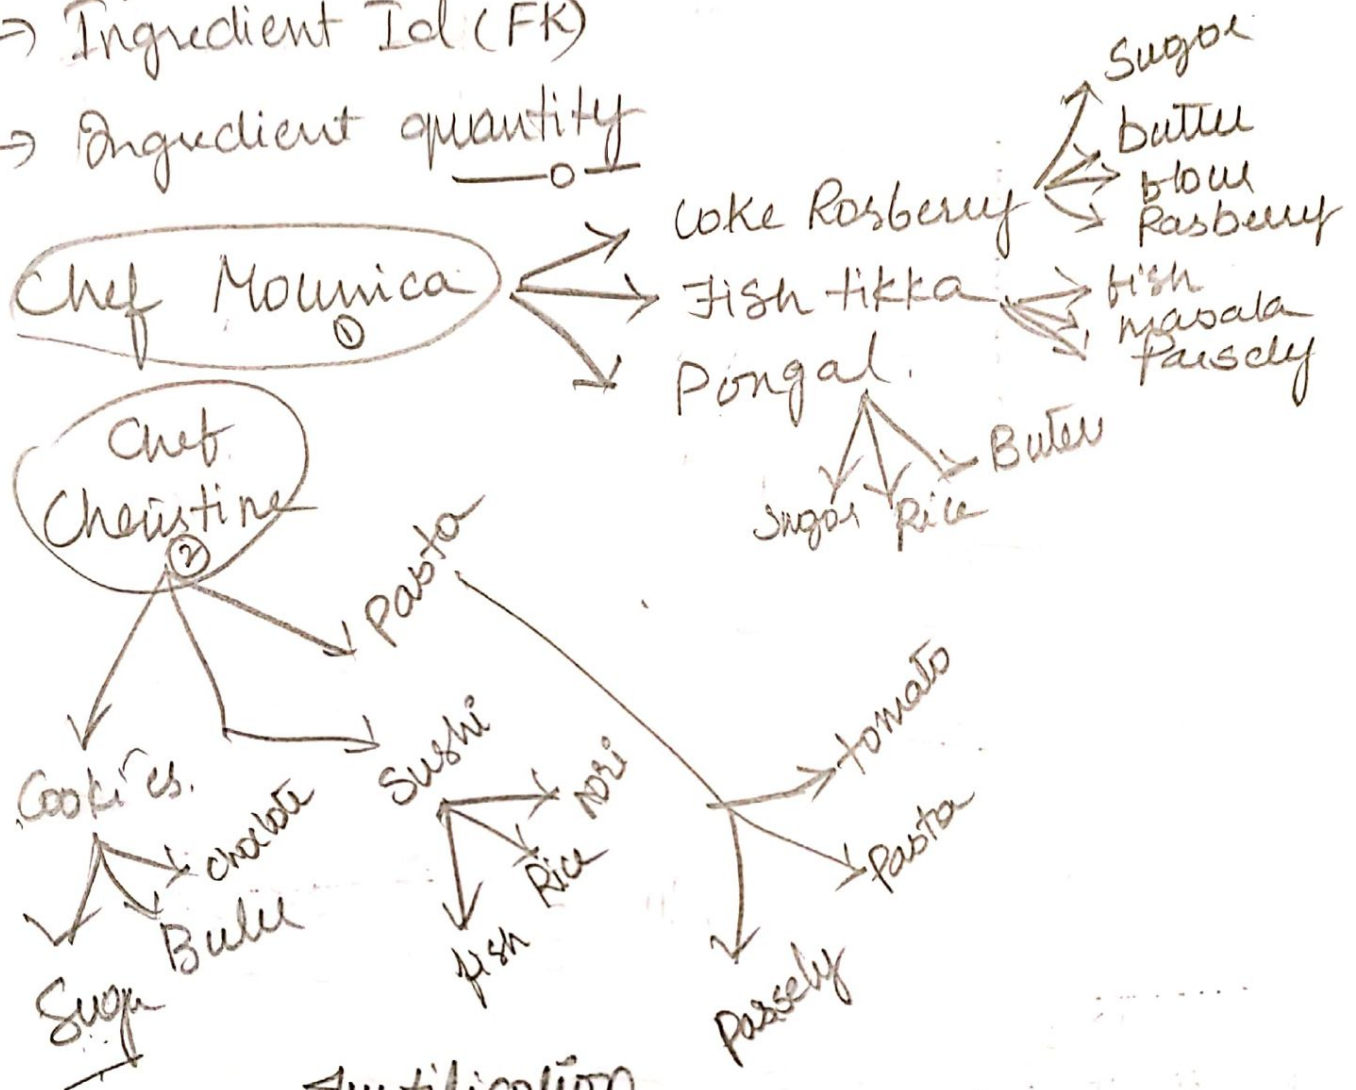 → Ingredient Id (FK)
→ Ingredient quantity
Chef Mounica
①
Coke Rasberry
Sugar
butter
flour
Rasberry
Fish tikka
fish
masala
Parsely
Pongal.
Sugar
Rice
Buter
Chef
Christine
②
Pasta
tomato
Pasta
Passely
Sushi
nori
Rice
fish
Cookies.
choclote
Butter
Sugar